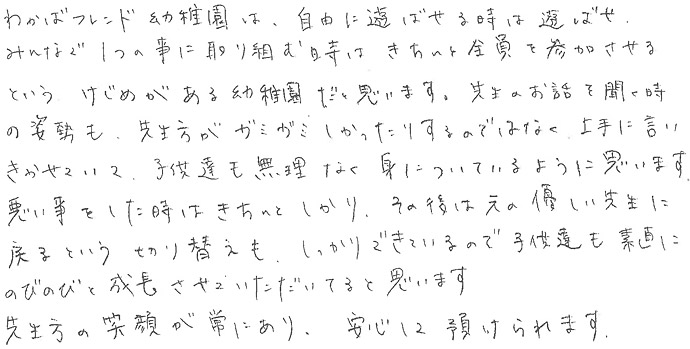 わかばフレンド幼稚園は、自由に遊ばせる時は遊ばせ、
みんなで1つの事に取り組む時はきちんと全員を参加させる
という けじめがある幼稚園だと思います。先生のお話を聞く時
の姿勢も、先生方がガミガミしかったりするのではなく、上手に言い
きかせていて、子供達も無理なく身についているように思います。
悪い事をした時はきちんとしかり、その後は元の優しい先生に
戻るという切り替えも、しっかりできているので子供達も素直に
のびのびと成長させていただいてると思います
先生方の笑顔が常にあり、安心して預けられます。